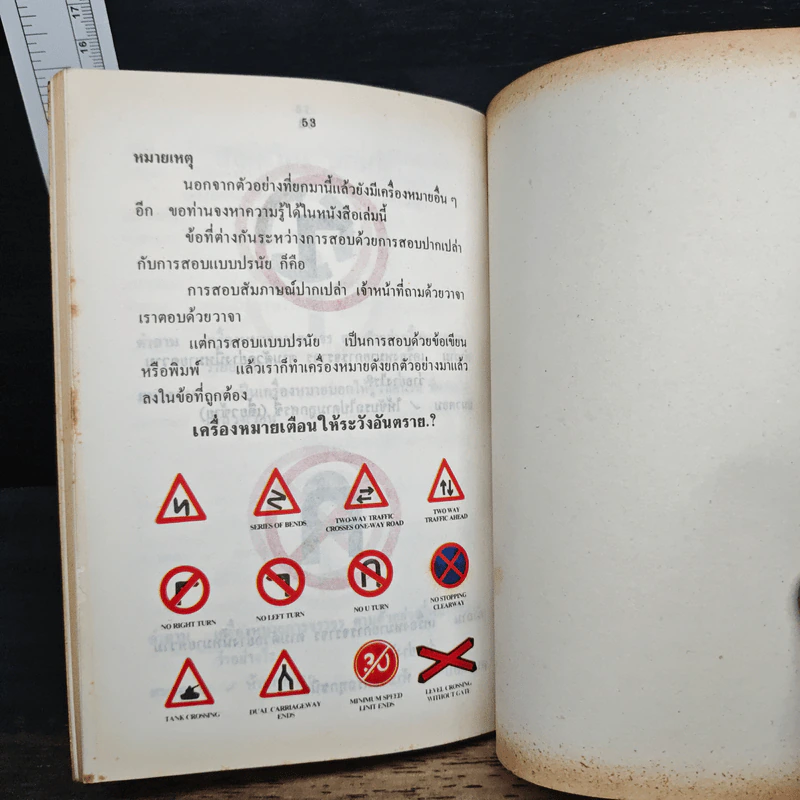 53
หมายเหตุ
นอกจากตัวอย่างที่ยกมานี้แล้วยังมีเครื่องหมายอื่น ๆ
อีก ขอท่านจงหาความรู้ได้ในหนังสือเล่มนี้
ข้อที่ต่างกันระหว่างการสอบด้วยการสอบปากเปล่า
กับการสอบแบบปรนัย ก็คือ
การสอบสัมภาษณ์ปากเปล่า เจ้าหน้าที่ถามด้วยวาจา
เราตอบด้วยวาจา
แต่การสอบแบบปรนัย เป็นการสอบด้วยข้อเขียน
หรือพิมพ์ แล้วเราก็ทำเครื่องหมายดังยกตัวอย่างมาแล้ว
ลงในข้อที่ถูกต้อง
เครื่องหมายเตือนให้ระวังอันตราย.?
SERIES OF BENDS
TWO-WAY TRAFFIC
CROSSES ONE-WAY ROAD
TWO WAY
TRAFFIC AHEAD
NO RIGHT TURN
NO LEFT TURN
NO U TURN
NO STOPPING
CLEARWAY
30
TANK CROSSING
DUAL CARRIAGEWAY
ENDS
MINIMUM SPEED
LIMIT ENDS
LEVEL CROSSING
WITHOUT GATE
17
16